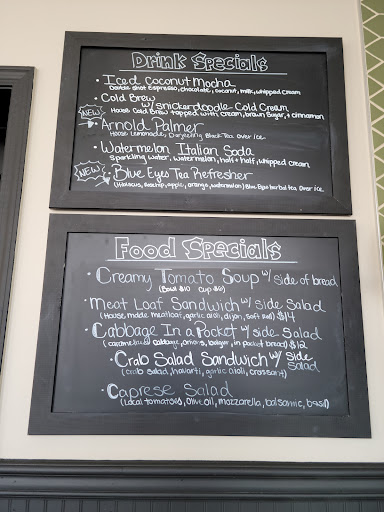 Drink Specials
• Iced Coconut Mocha
Double shot Espresso, chocolate, coconut, milk, whipped cream
• Cold Brew
w/ snickerdoodle Cold Cream
NEW House Cold Brew topped with cream, brown sugar, + cinnamon
• Arnold Palmer
House Lemonade, Darjeeling Black Tea Over ice
• Watermelon Italian Soda
Sparkling water, watermelon, half + half, whipped cream
NEW • Blue Eyes Tea Refresher
(Hibiscus, rosehip, apple, orange, watermelon) Blue Eyes herbal tea Over ice
Food Specials
• Creamy Tomato Soup w/ side of bread
(Bowl $10 Cup $6)
• Meat Loaf Sandwich w/ side Salad
(House made meatloaf, garlic aioli, dijon, soft roll) $14
• Cabbage In a Pocket w/ side Salad
(caramelized cabbage, onions, burger, in pocket bread) $12
• Crab Salad Sandwich w/ side Salad
(crab salad, havarti, garlic aioli, croissant)
• Caprese Salad
(Local tomatoes, olive oil, mozzarella, balsamic, basil)